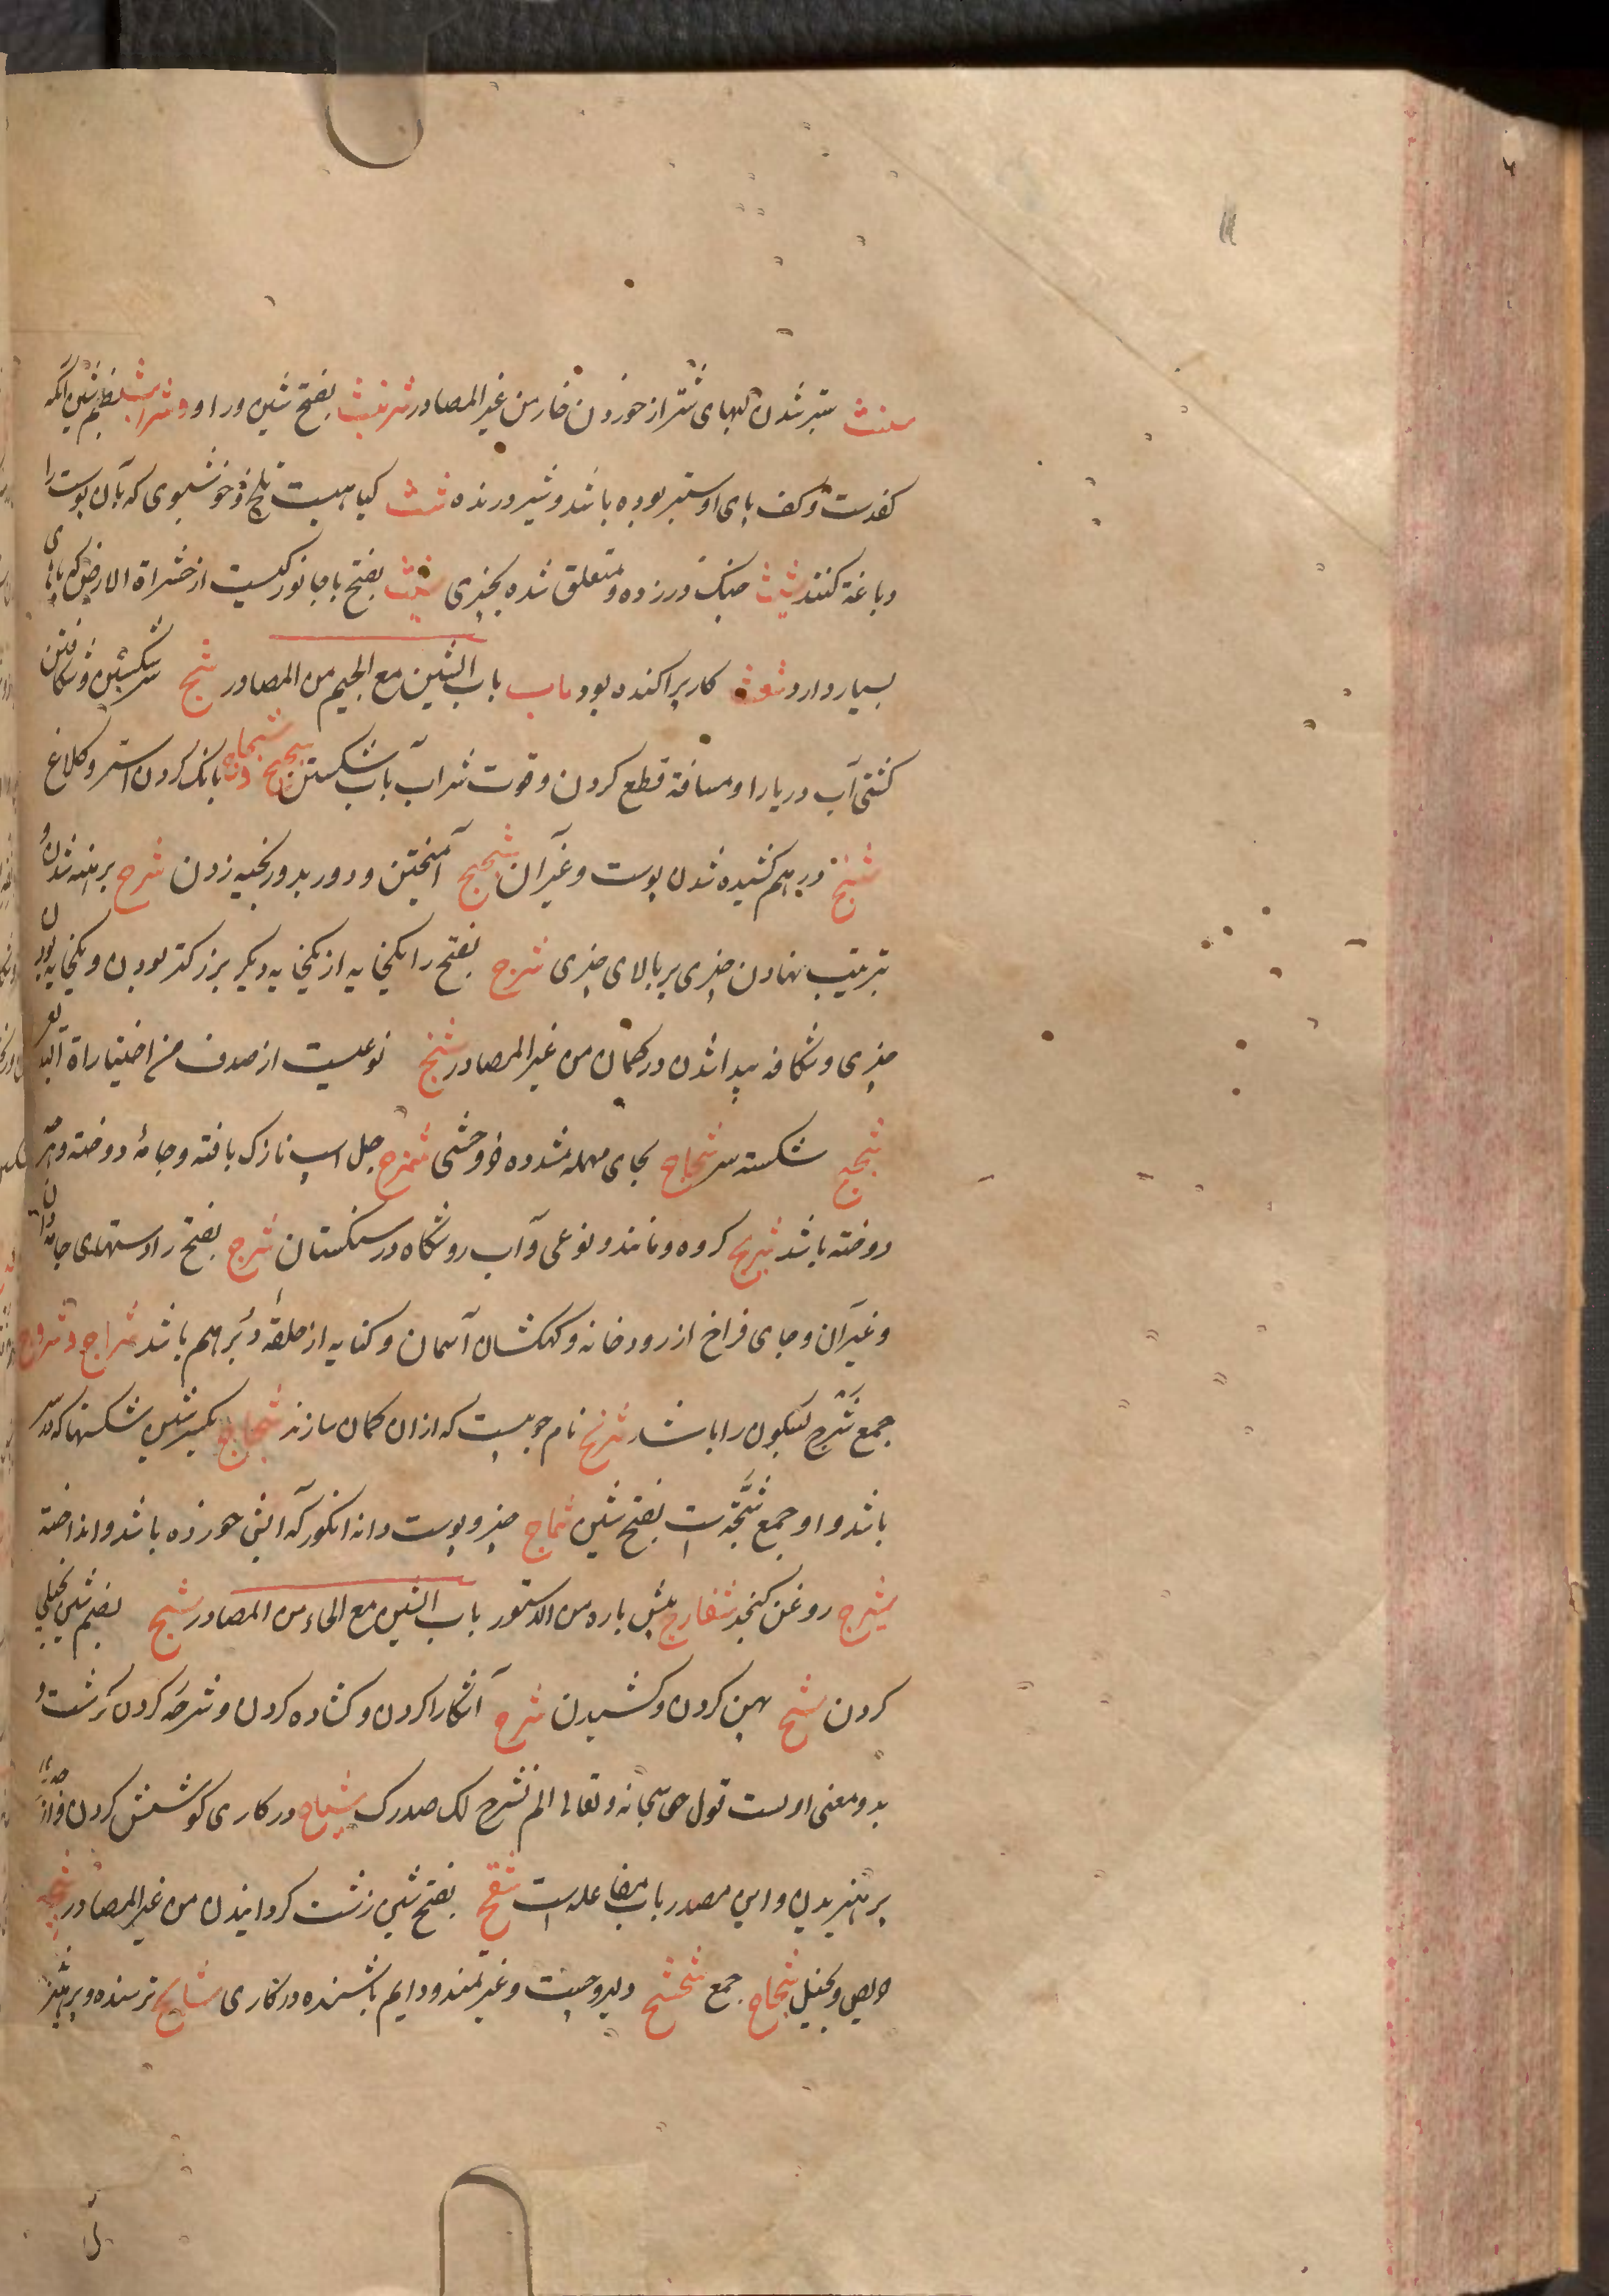 شنث ستبر شدن لبهای شتر از خوردن خار من غیر المصادر شرنبث بفتح شین و را و و شرابث بضم شین آنکه
کفدست و کف پای او ستبر بوده باشد و شیر درنده شث کیاهیست تلخ و خوشبوی که بآن پوست را
دباغة کنند شبث چنک در زده و متعلق شده بچیزی شبث بفتح با جانورکیست از حشراة الارض که پایهای
بسیار دارد شعث کار پراکنده بود باب باب الشین مع الجیم من المصادر شج سر شکستن و شکافتن
کشتی آب دریا را و مسافة قطع کردن و قوت شراب بآب شکستن شحیج و شحاج بانک کردن استر و کلاغ
شنج در هم کشیده شدن پوست و غیر آن شمج آمیختن و دور بدور بخیه زدن شرج برهنه شدن و
بترتیب نهادن چیزی بر بالای چیزی شرج بفتح را یکخایه از یکخایه دیکر بزرکتر بودن و یکخایه بودن
چیزی و شکافه پیدا شدن در کمان من غیر المصادر شنج نوعیست از صدف من اختیاراة البدیع
شجیج شکسته سر شحاج بحای مهمله مشدده خر وحشی شمرج جل اسب نازک بافته و جامهٔ دوخته و هر
دوخته باشد شرج کروه و مانند و نوعی و آب رو شکاه در سنکستان شرج بفتح را دستهای جامه دان
و غیر آن و جای فراخ از رودخانه و کهکشان آسمان و کنایه از حلقهٔ دبر هم باشد شراج و شروج
جمع شرج بسکون را باشد شریج نام چوبیست که از آن کمان سازند شجاج بکسر شین شکستها که در سر
باشد و او جمع شجّه است بفتح شین شماج چیز و پوست دانه انکور که آتش خورده باشد و انداخته
شیرج روغن کنجد شفارج پیش پاره من الدستور باب الشین مع الحاء من المصادر شح بضم شین بخیلی
کردن شبح پهن کردن و کشیدن شرح آشکارا کردن و کشاده کردن و شرحه کردن کوشت و
بدو معنی اوست قول حق سبحانه و تعالی الم نشرح لک صدرک شیاح در کاری کوشش کردن و از چیزی
پرهیزیدن و این مصدر باب مفاعله است شقح بفتح شین زشت کردانیدن من غیر المصادر شحیح
حریص و بخیل شحاح جمع شحشح دلیر و چست و غیرتمند و دایم باشنده در کاری شایح ترسنده و پرهیز